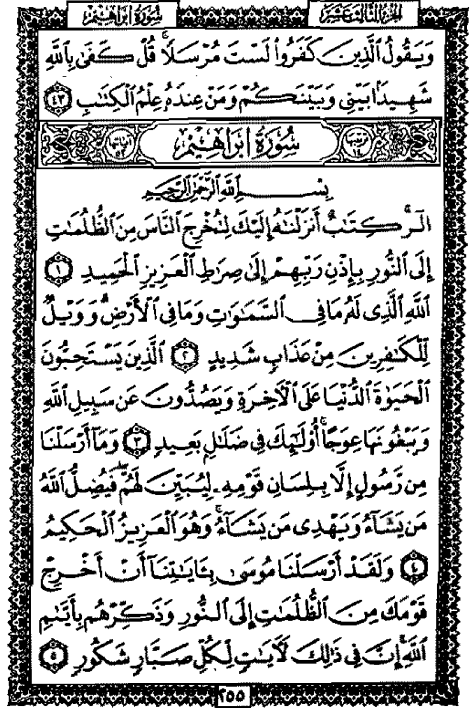 سُورَةُ إِبْرَاهِيم الجزء الثالث عشر
وَيَقُولُ ٱلَّذِينَ كَفَرُوا۟ لَسْتَ مُرْسَلًا ۚ قُلْ كَفَىٰ بِٱللَّهِ
شَهِيدًۢا بَيْنِى وَبَيْنَكُمْ وَمَنْ عِندَهُۥ عِلْمُ ٱلْكِتَٰبِ ٤٣
سُورَةُ إِبْرَاهِيم
بِسْمِ ٱللَّهِ ٱلرَّحْمَٰنِ ٱلرَّحِيمِ
الٓر ۚ كِتَٰبٌ أَنزَلْنَٰهُ إِلَيْكَ لِتُخْرِجَ ٱلنَّاسَ مِنَ ٱلظُّلُمَٰتِ
إِلَى ٱلنُّورِ بِإِذْنِ رَبِّهِمْ إِلَىٰ صِرَٰطِ ٱلْعَزِيزِ ٱلْحَمِيدِ ١
ٱللَّهِ ٱلَّذِى لَهُۥ مَا فِى ٱلسَّمَٰوَٰتِ وَمَا فِى ٱلْأَرْضِ ۗ وَوَيْلٌ
لِّلْكَٰفِرِينَ مِنْ عَذَابٍ شَدِيدٍ ٢ ٱلَّذِينَ يَسْتَحِبُّونَ
ٱلْحَيَوٰةَ ٱلدُّنْيَا عَلَى ٱلْءَاخِرَةِ وَيَصُدُّونَ عَن سَبِيلِ ٱللَّهِ
وَيَبْغُونَهَا عِوَجًا ۚ أُو۟لَٰٓئِكَ فِى ضَلَٰلٍۭ بَعِيدٍ ٣ وَمَآ أَرْسَلْنَا
مِن رَّسُولٍ إِلَّا بِلِسَانِ قَوْمِهِۦ لِيُبَيِّنَ لَهُمْ ۖ فَيُضِلُّ ٱللَّهُ
مَن يَشَآءُ وَيَهْدِى مَن يَشَآءُ ۚ وَهُوَ ٱلْعَزِيزُ ٱلْحَكِيمُ
٤ وَلَقَدْ أَرْسَلْنَا مُوسَىٰ بِـَٔايَٰتِنَآ أَنْ أَخْرِجْ
قَوْمَكَ مِنَ ٱلظُّلُمَٰتِ إِلَى ٱلنُّورِ وَذَكِّرْهُم بِأَيَّىٰمِ
ٱللَّهِ ۚ إِنَّ فِى ذَٰلِكَ لَءَايَٰتٍ لِّكُلِّ صَبَّارٍ شَكُورٍ ٥
٢٥٥